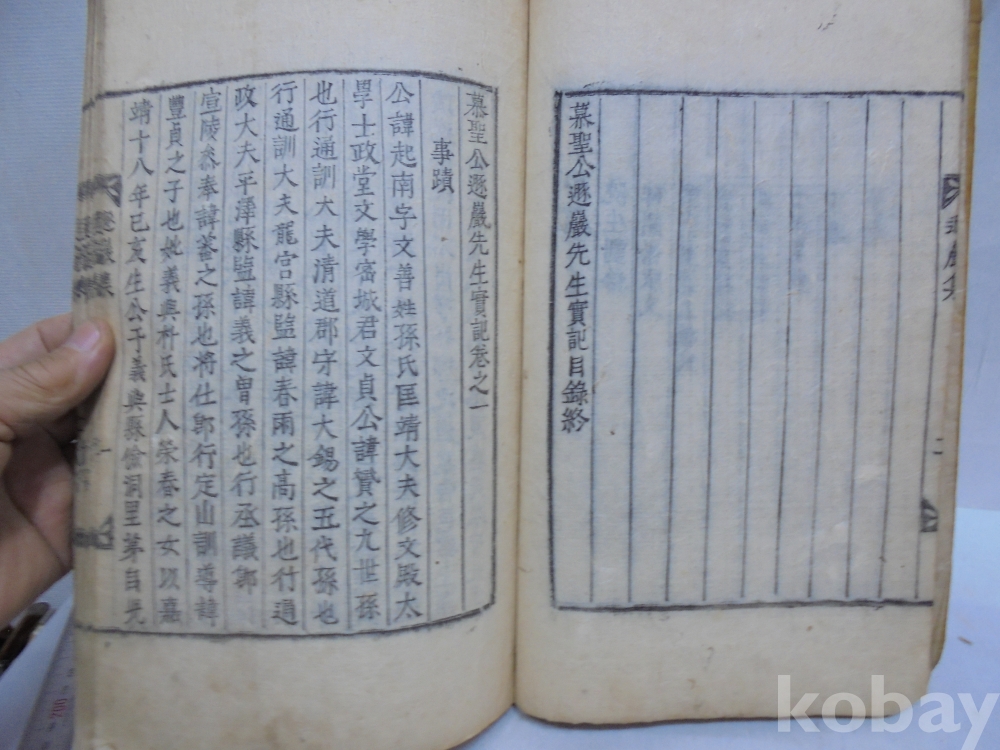 慕聖公遯巖先生實記目錄終
慕聖公遯巖先生實記卷之一
事蹟
公諱起南字文善姓孫氏匡靖大夫修文殿太
學士政堂文學密城君文貞公諱贇之九世孫
也行通訓大夫清道郡守諱大錫之五代孫也
行通訓大夫龍宮縣監諱春雨之高孫也行通
政大夫平澤縣監諱義之曾孫也行丞議郎
宣陵參奉諱釜之孫也將仕郎行定山訓導諱
豐貞之子也妣義興朴氏士人榮春之女以嘉
靖十八年己亥生公于義興縣 洞里第自元
kobay